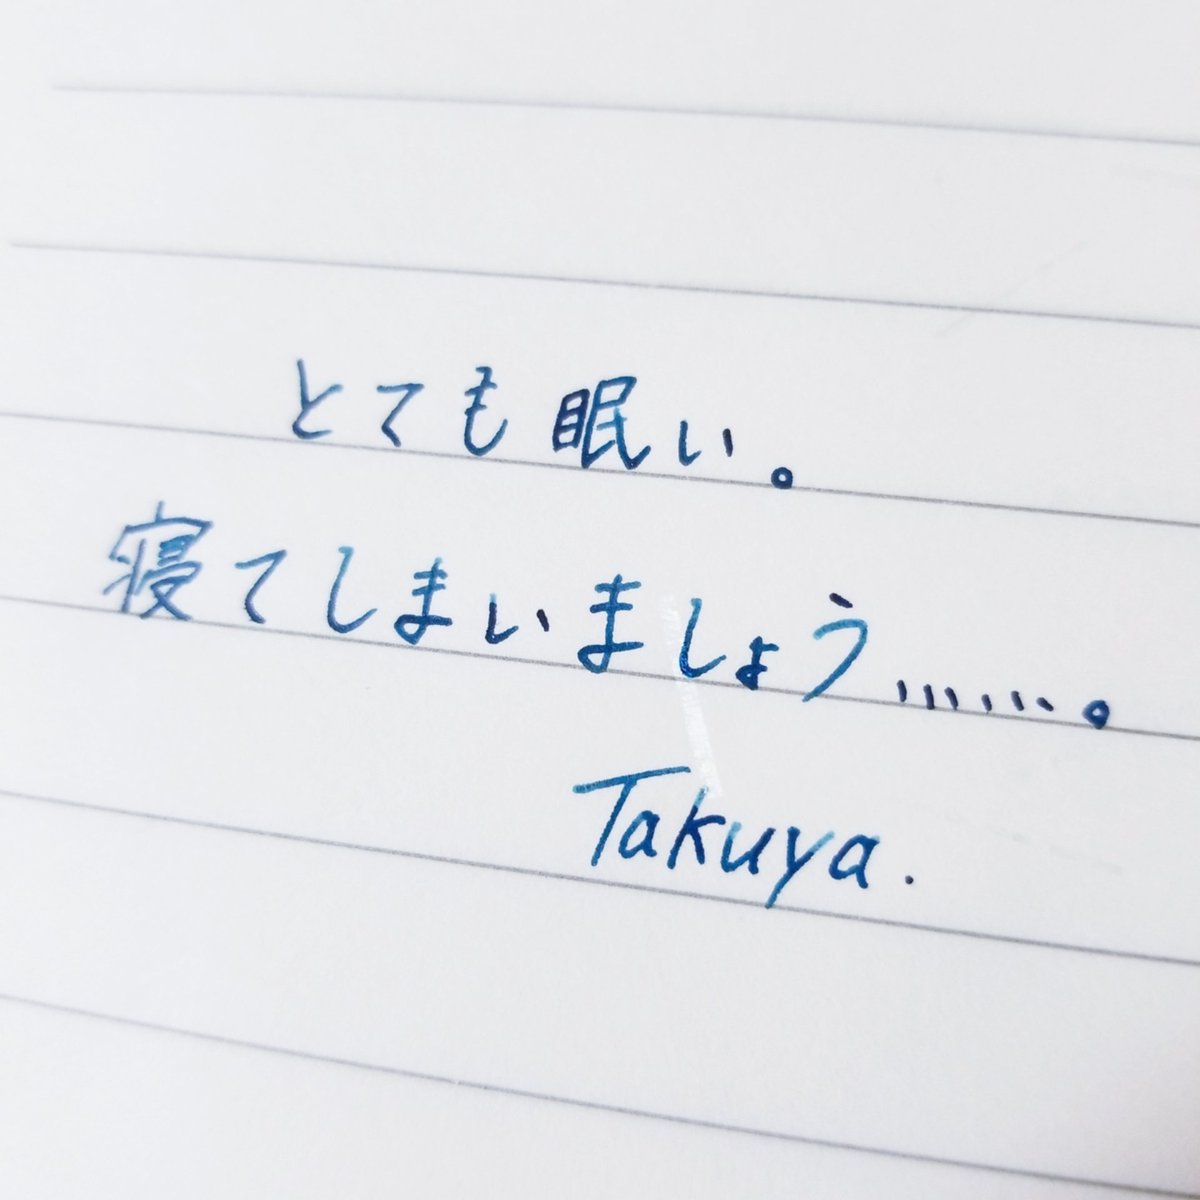 とても眠い。
寝てしまいましょう……。
Takuya.